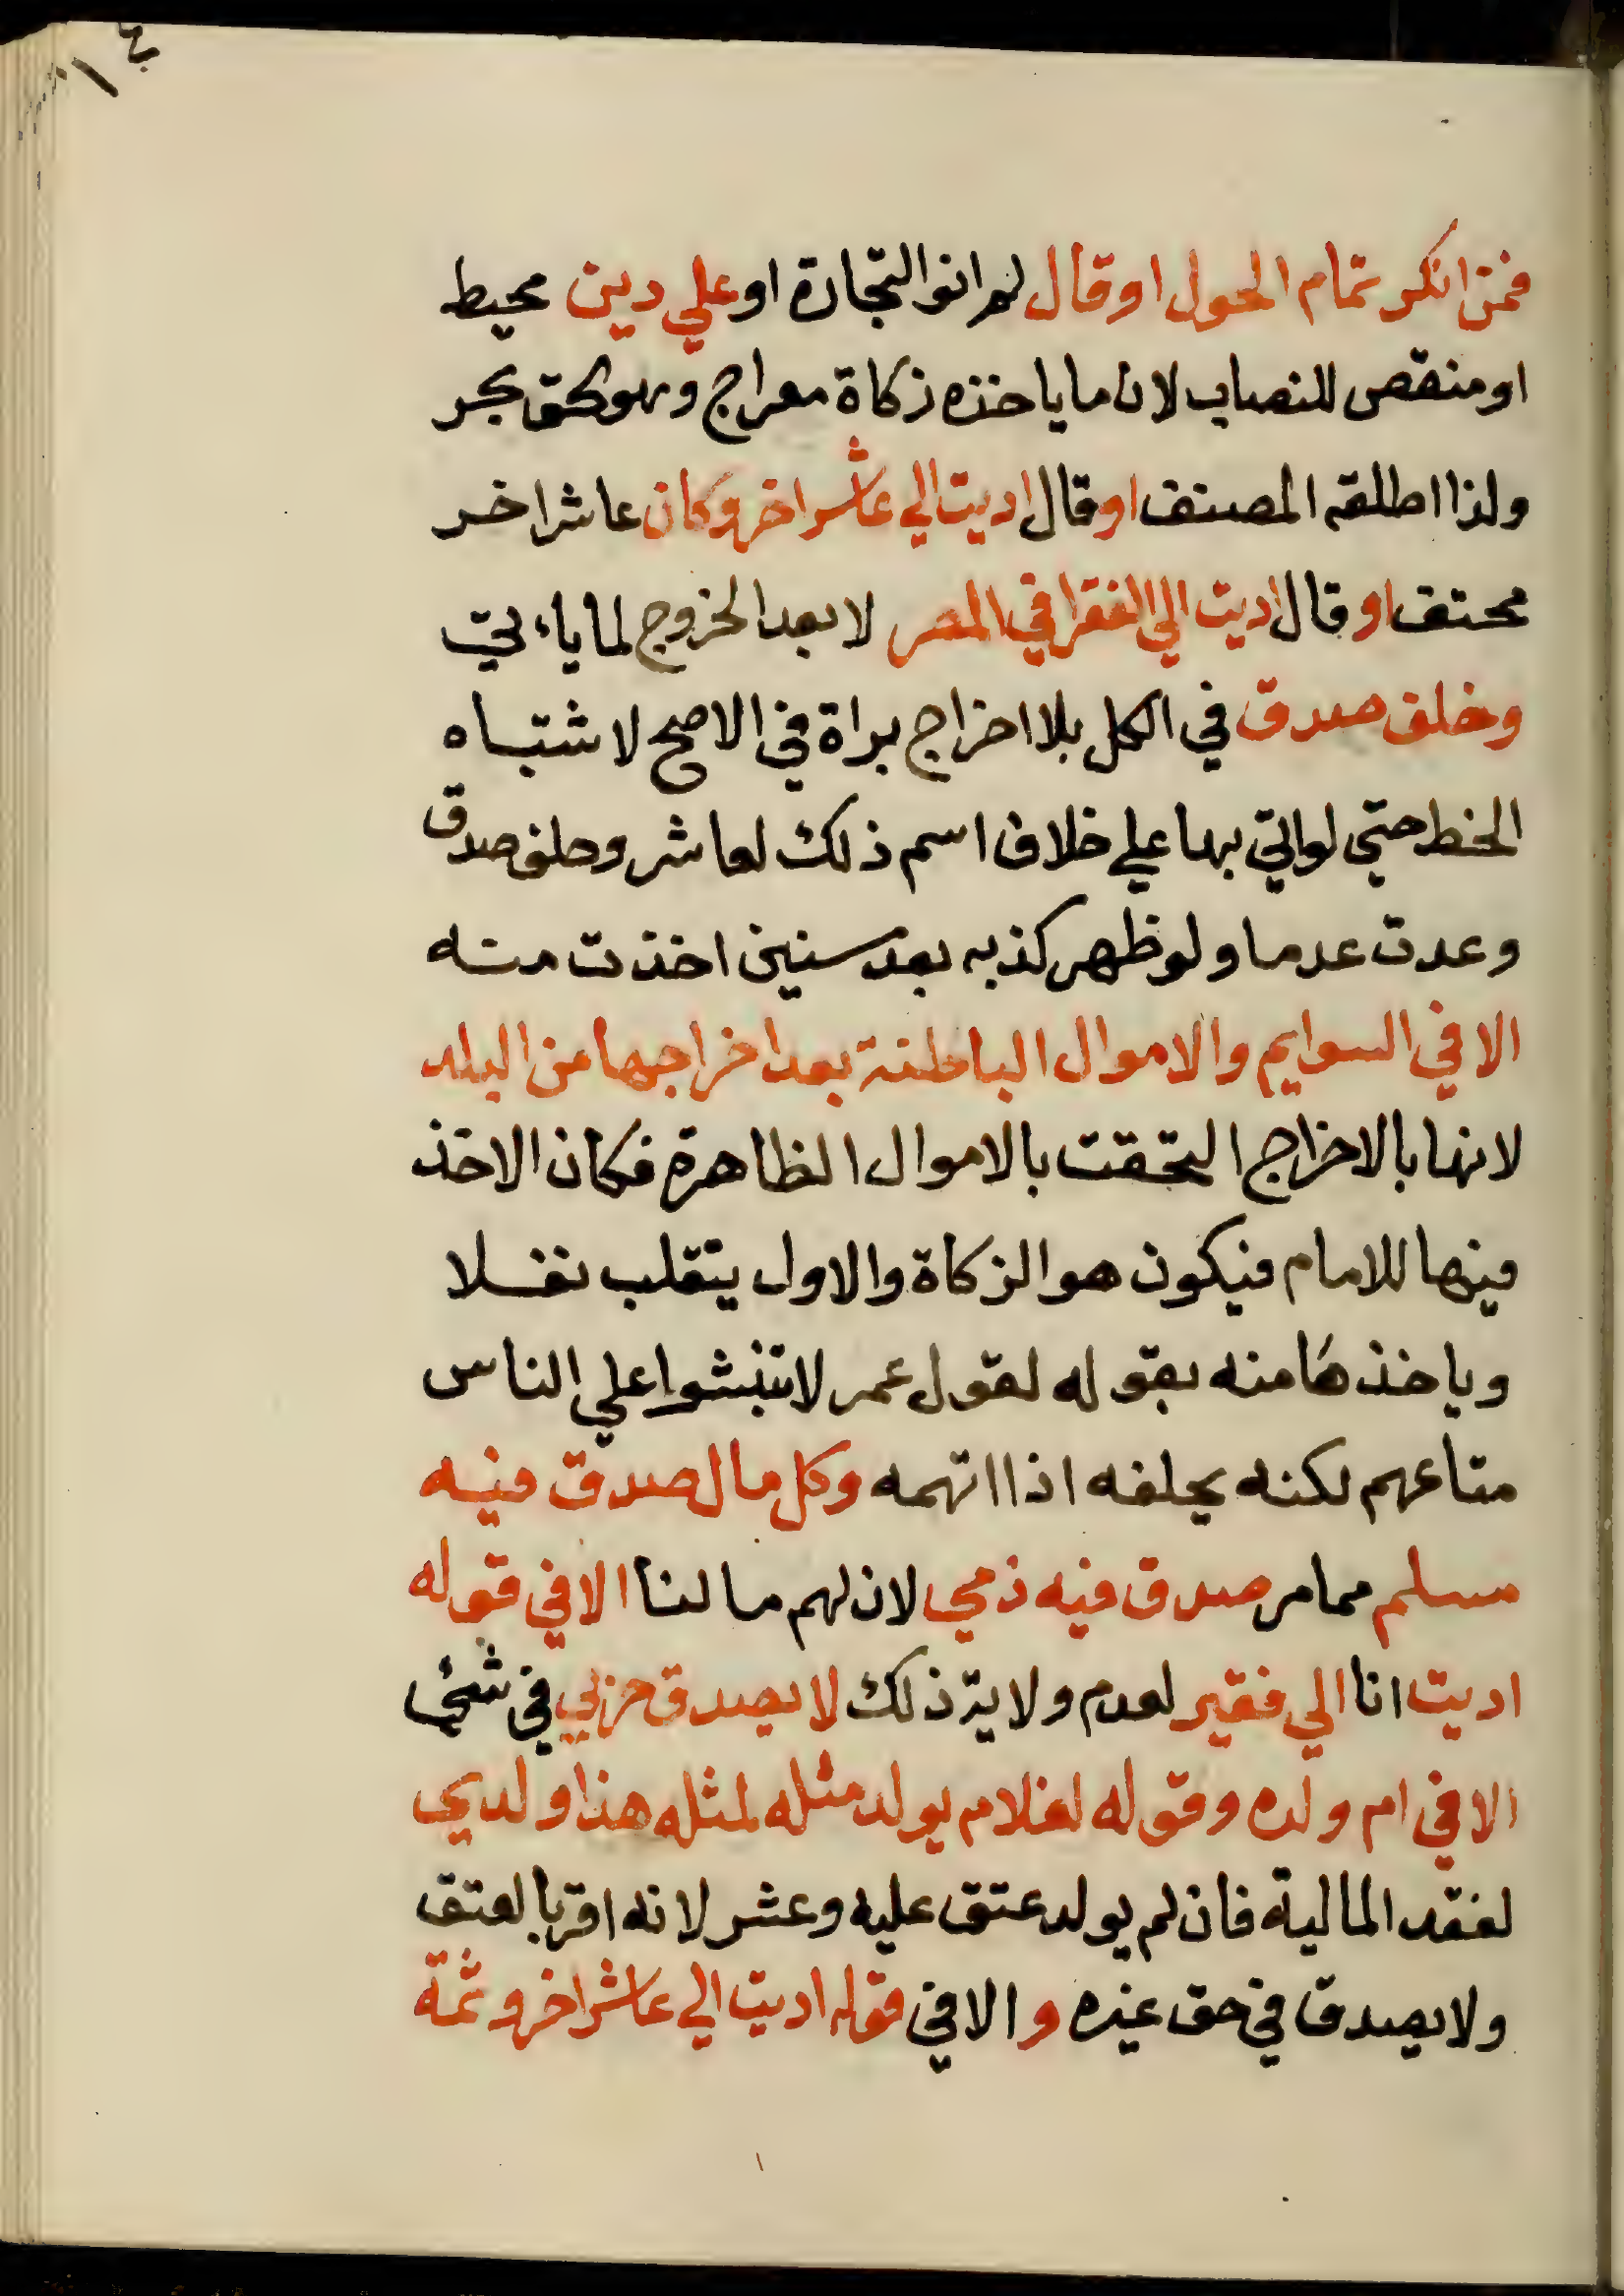 فمن انكر تمام الحول او قال لم انو التجارة او علي دين محيط
او منقص للنصاب لان ما ياخذه زكاة معراج وهو كحق بحر
ولذا اطلقه المصنف او قال اديت الي عاشر اخر وكان عاشر اخر
محتف او قال اديت الي الفقرا في المصر لا بعد الخروج لما ياءتي
وخلف صدق في الكل بلا اخراج براة في الاصح لا شتباه
الخط حتي لو اتي بها علي خلاف اسم ذلك لعاشر وحلف صدق
وعدت عدما ولو ظهر كذبه بعد سنين اخذت منه
الا في السوايم والاموال الباطنة بعد اخراجها من البلد
لانها بالاخراج التحقت بالاموال الظاهرة فكان الاخذ
فيها للامام فيكون هو الزكاة والاول ينقلب نفلا
وياخذها منه بقوله لقول عمر لا تنبشوا علي الناس
متاعهم لكنه يحلفه اذا اتهمه وكل مال صدق فيه
مسلم ممامر صدق فيه ذمي لان لهم ما لنا الا في قوله
اديت انا الي فقير لعدم ولاية ذلك لا يصدق حربي في شئي
الا في ام ولده وقوله لغلام يولد مثله لمثله هذا ولدي
لفقد المالية فان لم يولد عتق عليه وعشر لانه اقر بالعتق
ولا يصدق في حق غيره و الا في قوله اديت الي عاشر اخر وثمة